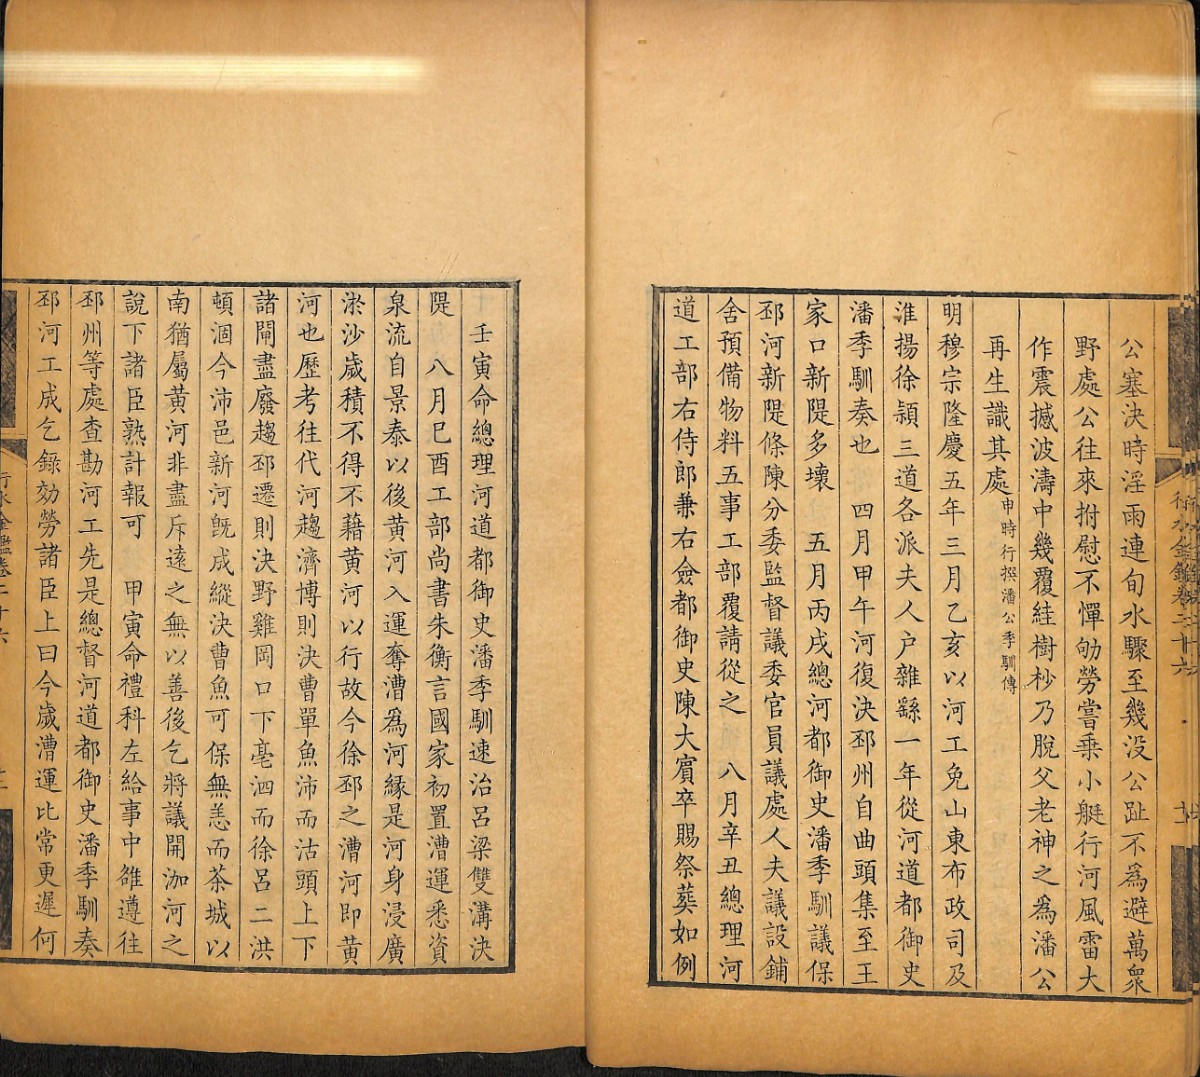 公塞決時淫雨連旬水驟至幾没公趾不為避萬衆
野處公往來拊慰不憚劬勞嘗乗小艇行河風雷大
作震撼波濤中幾覆絓樹杪乃脫父老神之為潘公
再生識其處申時行撰潘公季馴傳
明穆宗隆慶五年三月乙亥以河工免山東布政司及
淮揚徐潁三道各派夫人户雜繇一年從河道都御史
潘季馴奏也　四月甲午河復決邳州自曲頭集至王
家口新隄多壞　五月丙戌總河都御史潘季馴議保
邳河新隄條陳分委監督議委官員議處人夫議設鋪
舍預備物料五事工部覆請從之　八月辛丑總理河
道工部右侍郎兼右僉都御史陳大賓卒賜祭葬如例
壬寅命總理河道都御史潘季馴速治吕梁雙溝決
隄　八月巳酉工部尚書朱衡言國家初置漕運悉資
泉流自景泰以後黄河入運奪漕爲河縁是河身浸廣
淤沙歲積不得不藉黄河以行故今徐邳之漕河即黄
河也歷考往代河趨濟博則決曹單魚沛而沽頭上下
諸閘盡廢趨邳遷則決野雞岡口下亳泗而徐吕二洪
頓涸今沛邑新河既成縱決曹魚可保無恙而茶城以
南猶屬黄河非盡斥逺之無以善後乞將議開泇河之
說下諸臣熟計報可　甲寅命禮科左給事中雒遵往
邳州等處查勘河工先是總督河道都御史潘季馴奏
邳河工成乞録効勞諸臣上曰今歲漕運比常更遲何
行水金鑑卷二十六